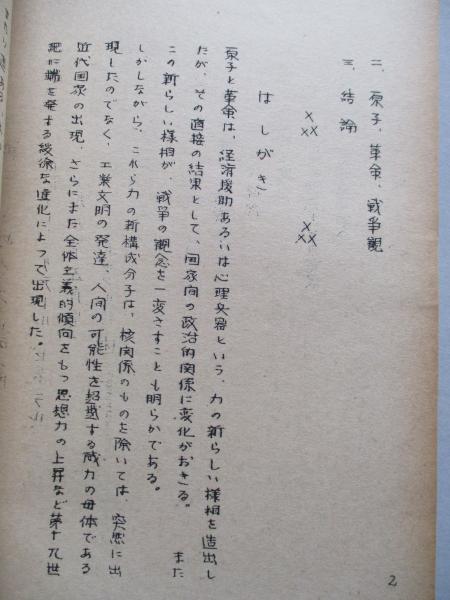 二、原子、革命、戦争観
三、結論
×
××
×
××
はしがき
原子と革命は、経済援助あるいは心理兵器という、力の新らしい様相を造出し
たが、その直接の結果として、国家间の政治的関係に変化がおきる。また
この新らしい様相が、戦争の観念を一変さすことも明らかである。
しかしながら、これら力の新構成分子は、核関係のものを除いては、突然に出
現したのでなく、工業文明の発達、人间の可能性を超越する威力の母体である
近代国家の出現、さらにまた全体主義的傾向をもつ思想力の上昇など第十九世
紀に端を発する緩徐な進化によって出現した。
2